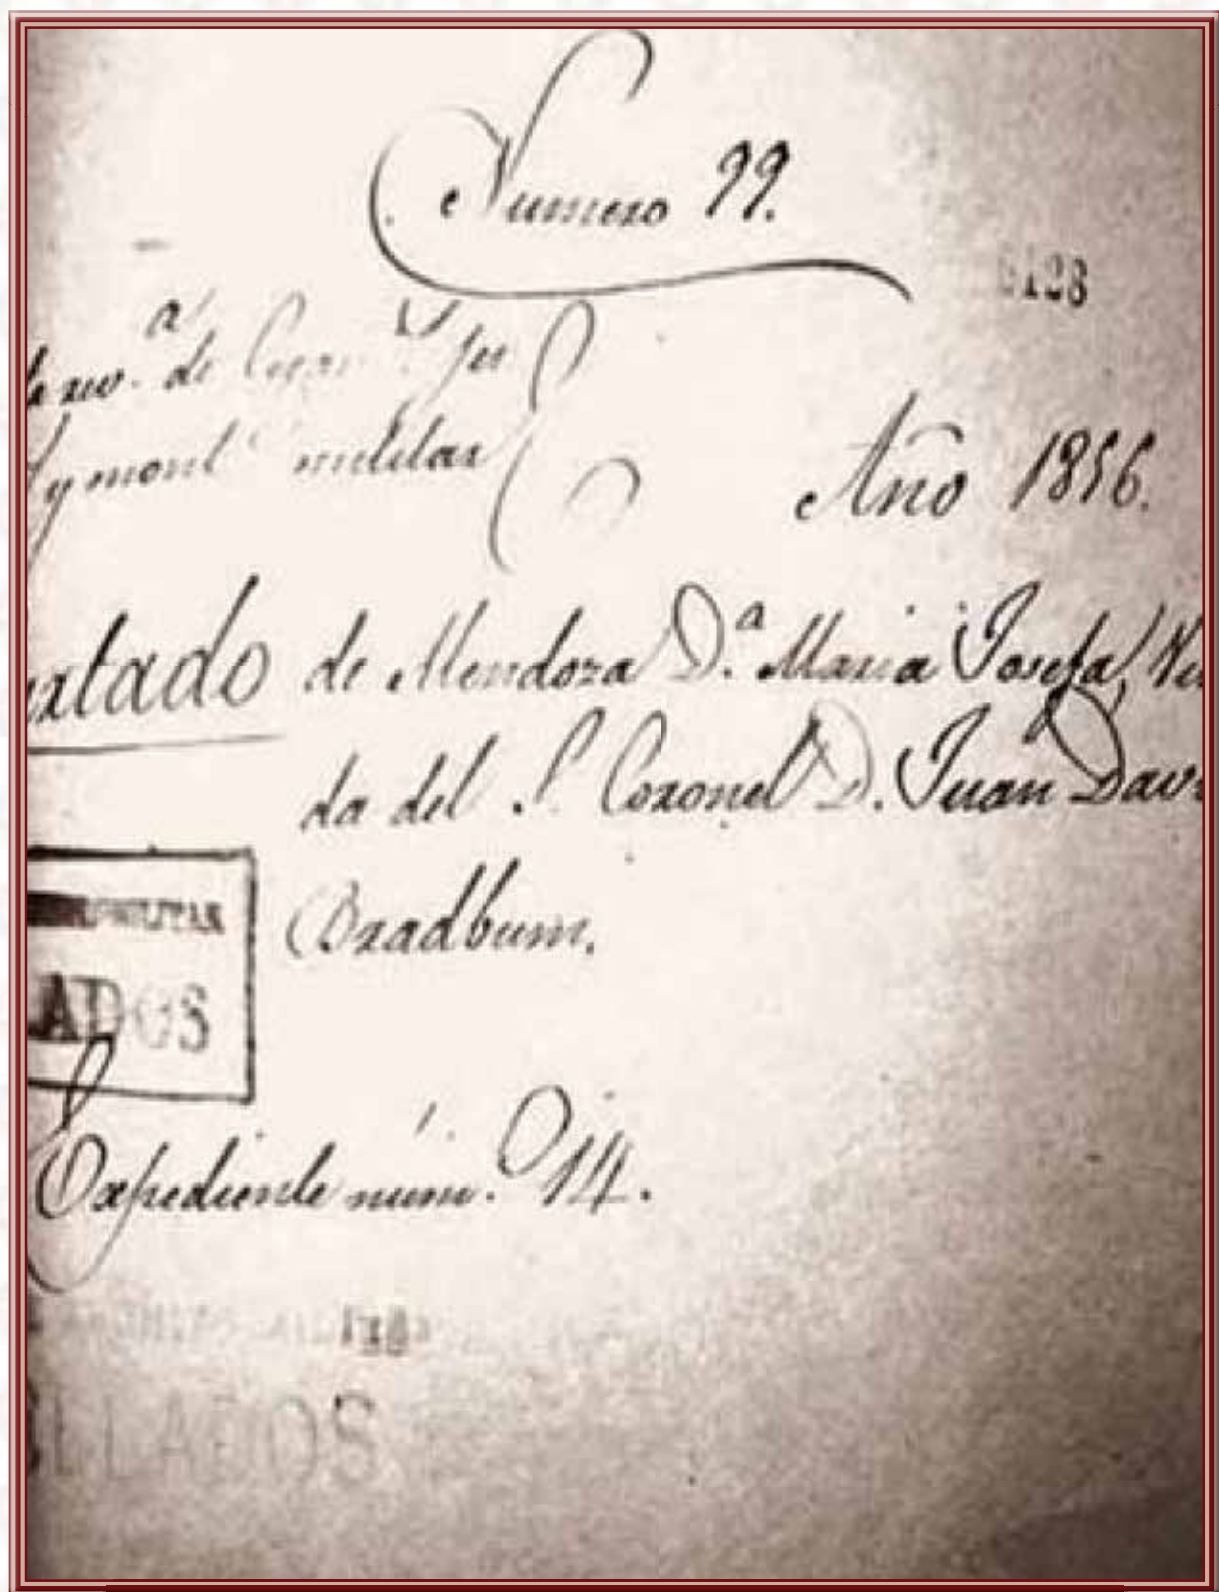 Numero 99.
6128
de
y mont militar
Año 1856.
de Mendoza D.ª Maria Josefa, Viu
da del S. Coronel D. Juan Dav
Bradburn.
ADOS
Expediente núm. 14.
LLADOS